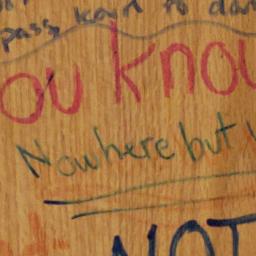 pass to
ou know
Nowhere but
NOT